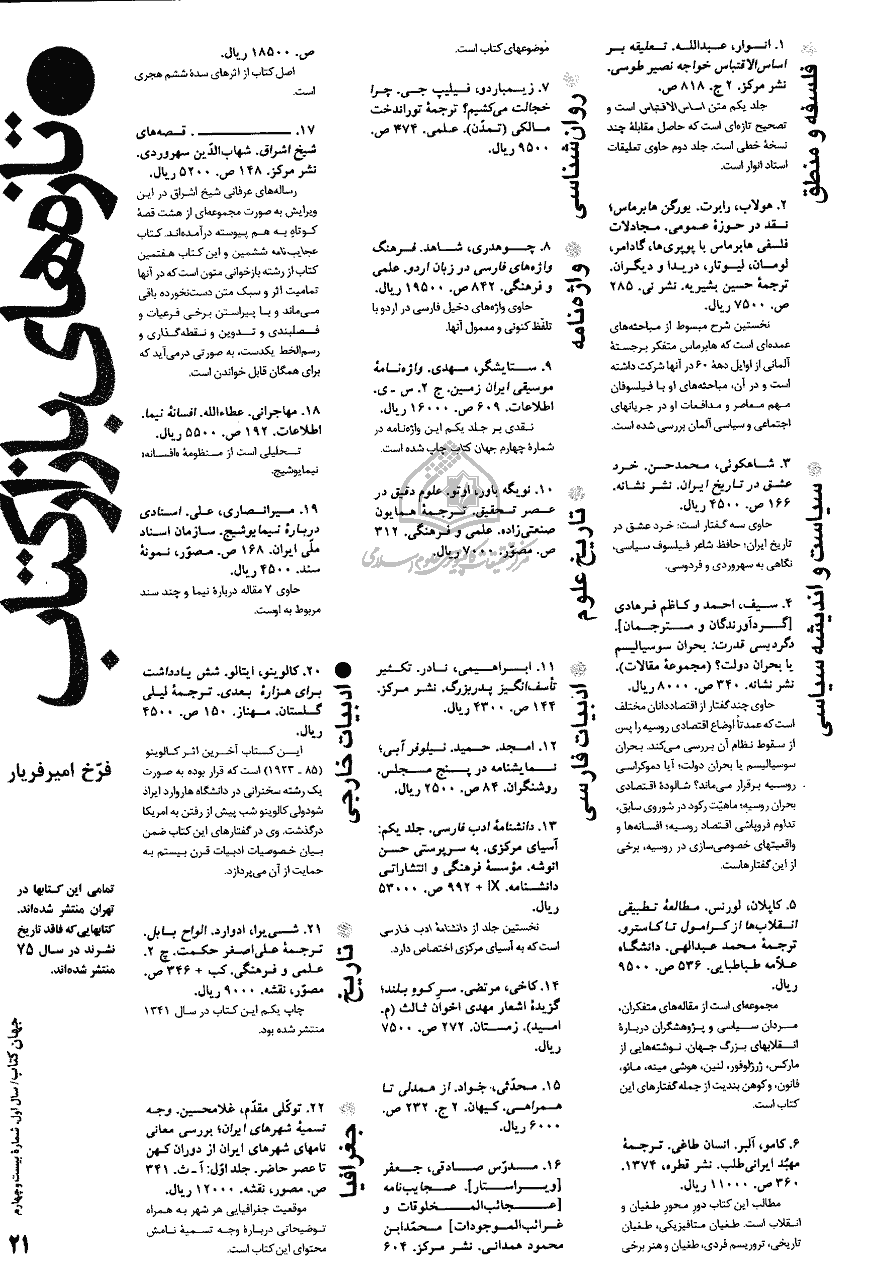 تازه‌های بازار کتاب
فرّخ امیرفریار
تمامی این کتابها در
تهران منتشر شده‌اند.
کتابهایی‌که فاقد تاریخ
نشرند در سال ۷۵
منتشر شده‌اند.
فلسفه و منطق
۱. انوار، عبدالله. تعلیقه بر
اساس‌الاقتباس خواجه نصیر طوسی.
نشر مرکز. ۲ ج. ۸۱۸ ص.
جلد یکم متن اساس‌الاقتباس است و
تصحیح تازه‌ای است که حاصل مقابلهٔ چند
نسخهٔ خطی است. جلد دوم حاوی تعلیقات
استاد انوار است.
۲. هولاب، رابرت. یورگن هابرماس؛
نقد در حوزهٔ عمومی. مجادلات
فلسفی هابرماس با پوپری‌ها، گادامر،
لومان، لیوتار، دریدا و دیگران.
ترجمهٔ حسین بشیریه. نشر نی. ۲۸۵
ص. ۷۵۰۰ ریال.
نخستین شرح مبسوط از مباحثه‌های
عمده‌ای است که هابرماس متفکر برجستهٔ
آلمانی از اوایل دههٔ ۶۰ در آنها شرکت داشته
است و در آن، مباحثه‌های او با فیلسوفان
مهم معاصر و مدافعات او در جریانهای
اجتماعی و سیاسی آلمان بررسی شده است.
سیاست و اندیشه سیاسی
۳. شاهکوئی، محمدحسن. خرد
عشق در تاریخ ایران. نشر نشانه.
۱۶۶ ص. ۴۵۰۰ ریال.
حاوی سه گفتار است: خرد عشق در
تاریخ ایران؛ حافظ شاعر فیلسوف سیاسی،
نگاهی به سهروردی و فردوسی.
۴. سیف، احمد و کاظم فرهادی
[گردآورندگان و مترجمان].
دگردیسی قدرت: بحران سوسیالیسم
یا بحران دولت؟ (مجموعهٔ مقالات).
نشر نشانه. ۳۴۰ ص. ۸۰۰۰ ریال.
حاوی چند گفتار از اقتصاددانان مختلف
است که عمدتاً اوضاع اقتصادی روسیه را پس
از سقوط نظام آن بررسی می‌کند. بحران
سوسیالیسم یا بحران دولت؛ آیا دموکراسی
روسیه برقرار می‌ماند؟ شالودهٔ اقتصادی
بحران روسیه؛ ماهیّت رکود در شوروی سابق،
تداوم فروپاشی اقتصاد روسیه؛ افسانه‌ها و
واقعیتهای خصوصی‌سازی در روسیه، برخی
از این گفتارهاست.
۵. کاپلان، لورنس. مطالعهٔ تطبیقی
انقلاب‌ها از کرامول تا کاسترو.
ترجمهٔ محمد عبدالهی. دانشگاه
علاّمه طباطبایی. ۵۳۶ ص. ۹۵۰۰
ریال.
مجموعه‌ای است از مقاله‌های متفکران،
مردان سیاسی و پژوهشگران دربارهٔ
انقلابهای بزرگ جهان. نوشته‌هایی از
مارکس، ژرژلوفور، لنین، هوشی مینه، مائو،
فانون، و کوهن بندیت از جمله گفتارهای این
کتاب است.
۶. کامو، آلبر. انسان طاغی. ترجمهٔ
مهبّد ایرانی‌طلب. نشر قطره، ۱۳۷۴.
۳۶۰ ص. ۱۱۰۰۰ ریال.
مطالب این کتاب دور محور طغیان و
انقلاب است. طغیان متافیزیکی، طغیان
تاریخی، تروریسم فردی، طغیان و هنر برخی
موضوعهای کتاب است.
روان‌شناسی
۷. زیمباردو، فیلیپ جی. چرا
خجالت می‌کشیم؟ ترجمهٔ توراندخت
مالکی (تمدّن). علمی. ۳۷۴ ص.
۹۵۰۰ ریال.
واژه‌نامه
۸. چوهدری، شاهد. فرهنگ
واژه‌های فارسی در زبان اردو. علمی
و فرهنگی. ۸۴۲ ص. ۱۹۵۰۰ ریال.
حاوی واژه‌های دخیل فارسی در اردو با
تلفّظ کنونی و معمول آنها.
۹. ستایشگر، مهدی. واژه‌نامهٔ
موسیقی ایران زمین. ج ۲. س - ی.
اطلاعات. ۶۰۹ ص. ۱۶۰۰۰ ریال.
نقدی بر جلد یکم این واژه‌نامه در
شمارهٔ چهارم جهان کتاب چاپ شده است.
تاریخ علوم
۱۰. نویگه باور، اوتو. علوم دقیق در
عصر تحقیق. ترجمهٔ همایون
صنعتی‌زاده. علمی و فرهنگی. ۳۱۲
ص. مصوّر. ۷۰۰۰ ریال.
ادبیات فارسی
۱۱. ابراهیمی، نادر. تکثیر
تأسف‌انگیز پدربزرگ. نشر مرکز.
۱۴۴ ص. ۴۳۰۰ ریال.
۱۲. امجد، حمید. نیلوفر آبی؛
نمایشنامه در پنج مجلس.
روشنگران. ۸۴ ص. ۲۵۰۰ ریال.
۱۳. دانشنامهٔ ادب فارسی. جلد یکم:
آسیای مرکزی. به سرپرستی حسن
انوشه. مؤسسهٔ فرهنگی و انتشاراتی
دانشنامه. IX + ۹۹۲ ص. ۵۳۰۰۰
ریال.
نخستین جلد از دانشنامهٔ ادب فارسی
است که به آسیای مرکزی اختصاص دارد.
۱۴. کاخی، مرتضی. سر کوه بلند؛
گزیدهٔ اشعار مهدی اخوان ثالث (م.
امید). زمستان. ۲۷۲ ص. ۷۵۰۰
ریال.
۱۵. محدّثی، جواد. از همدلی تا
همراهی. کیهان. ۲ ج. ۲۳۲ ص.
۶۰۰۰ ریال.
۱۶. مدرّس صادقی، جعفر
[ویراستار]. عجایب‌نامه
[عجائب‌المخلوقات و
غرائب‌الموجودات] محمّدابن
محمود همدانی. نشر مرکز. ۶۰۴
ص. ۱۸۵۰۰ ریال.
اصل کتاب از اثرهای سدهٔ ششم هجری
است.
۱۷. ــــــــــــــــ . قصه‌های
شیخ اشراق. شهاب‌الدّین سهروردی.
نشر مرکز. ۱۴۸ ص. ۵۲۰۰ ریال.
رساله‌های عرفانی شیخ اشراق در این
ویرایش به صورت مجموعه‌ای از هشت قصهٔ
کوتاهِ به هم پیوسته درآمده‌اند. کتاب
عجایب‌نامه ششمین و این کتاب هفتمین
کتاب از رشته بازخوانی متون است که در آنها
تمامیت اثر و سبک متن دست‌نخورده باقی
می‌ماند و با پیراستن برخی فرعیات و
فصلبندی و تدوین و نقطه‌گذاری و
رسم‌الخط یکدست، به صورتی درمی‌آید که
برای همگان قابل خواندن است.
۱۸. مهاجرانی، عطاءالله. افسانهٔ نیما.
اطلاعات. ۱۹۲ ص. ۵۵۰۰ ریال.
تحلیلی است از منظومهٔ «افسانه»
نیمایوشیج.
۱۹. میرانصاری، علی. اسنادی
دربارهٔ نیمایوشیج. سازمان اسناد
ملّی ایران. ۱۶۸ ص. مصوّر، نمونهٔ
سند. ۴۵۰۰ ریال.
حاوی ۷ مقاله دربارهٔ نیما و چند سند
مربوط به اوست.
ادبیات خارجی
۲۰. کالوینو، ایتالو. شش یادداشت
برای هزارهٔ بعدی. ترجمهٔ لیلی
گلستان. مهناز. ۱۵۰ ص. ۴۵۰۰
ریال.
این کتاب آخرین اثر کالوینو
(۸۵ ـ ۱۹۲۳) است که قرار بوده به صورت
یک رشته سخنرانی در دانشگاه هاروارد ایراد
شودولی کالوینو شب پیش از رفتن به امریکا
درگذشت. وی در گفتارهای این کتاب ضمن
بیان خصوصیات ادبیات قرن بیستم به
حمایت از آن می‌پردازد.
تاریخ
۲۱. شی‌یرا، ادوارد. الواح بابل.
ترجمهٔ علی‌اصغر حکمت. چ ۲.
علمی و فرهنگی. کب + ۳۴۶ ص.
مصوّر، نقشه. ۹۰۰۰ ریال.
چاپ یکم این کتاب در سال ۱۳۴۱
منتشر شده بود.
جغرافیا
۲۲. توکّلی مقدّم، غلامحسین. وجه
تسمیهٔ شهرهای ایران؛ بررسی معانی
نامهای شهرهای ایران از دوران کهن
تا عصر حاضر. جلد اوّل: آ ـ ث. ۳۴۱
ص. مصور، نقشه. ۱۲۰۰۰ ریال.
موقعیت جغرافیایی هر شهر به همراه
توضیحاتی دربارهٔ وجه تسمیهٔ نامش
محتوای این کتاب است.
جهان کتاب / سال اول، شمارهٔ بیست و چهارم
۲۱